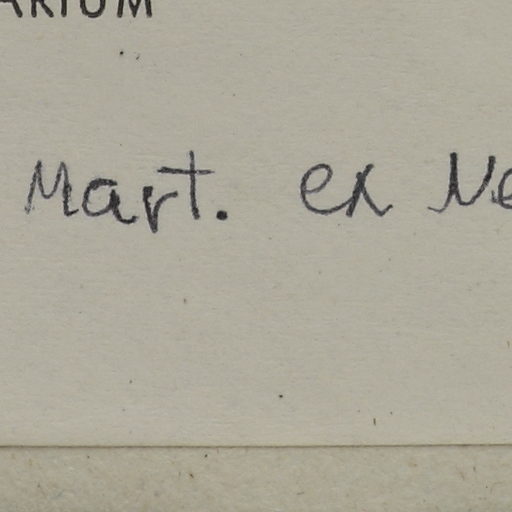 ARIUM
Mart. ex Ne